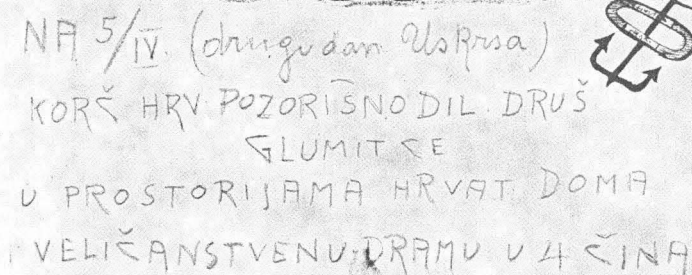 NA 5/IV. (drugi dan Uskrsa)
KORČ HRV POZORIŠNO DIL. DRUŠ
GLUMIT ĆE
U PROSTORIJAMA HRVAT. DOMA
VELIČANSTVENU DRAMU U 4 ČINA